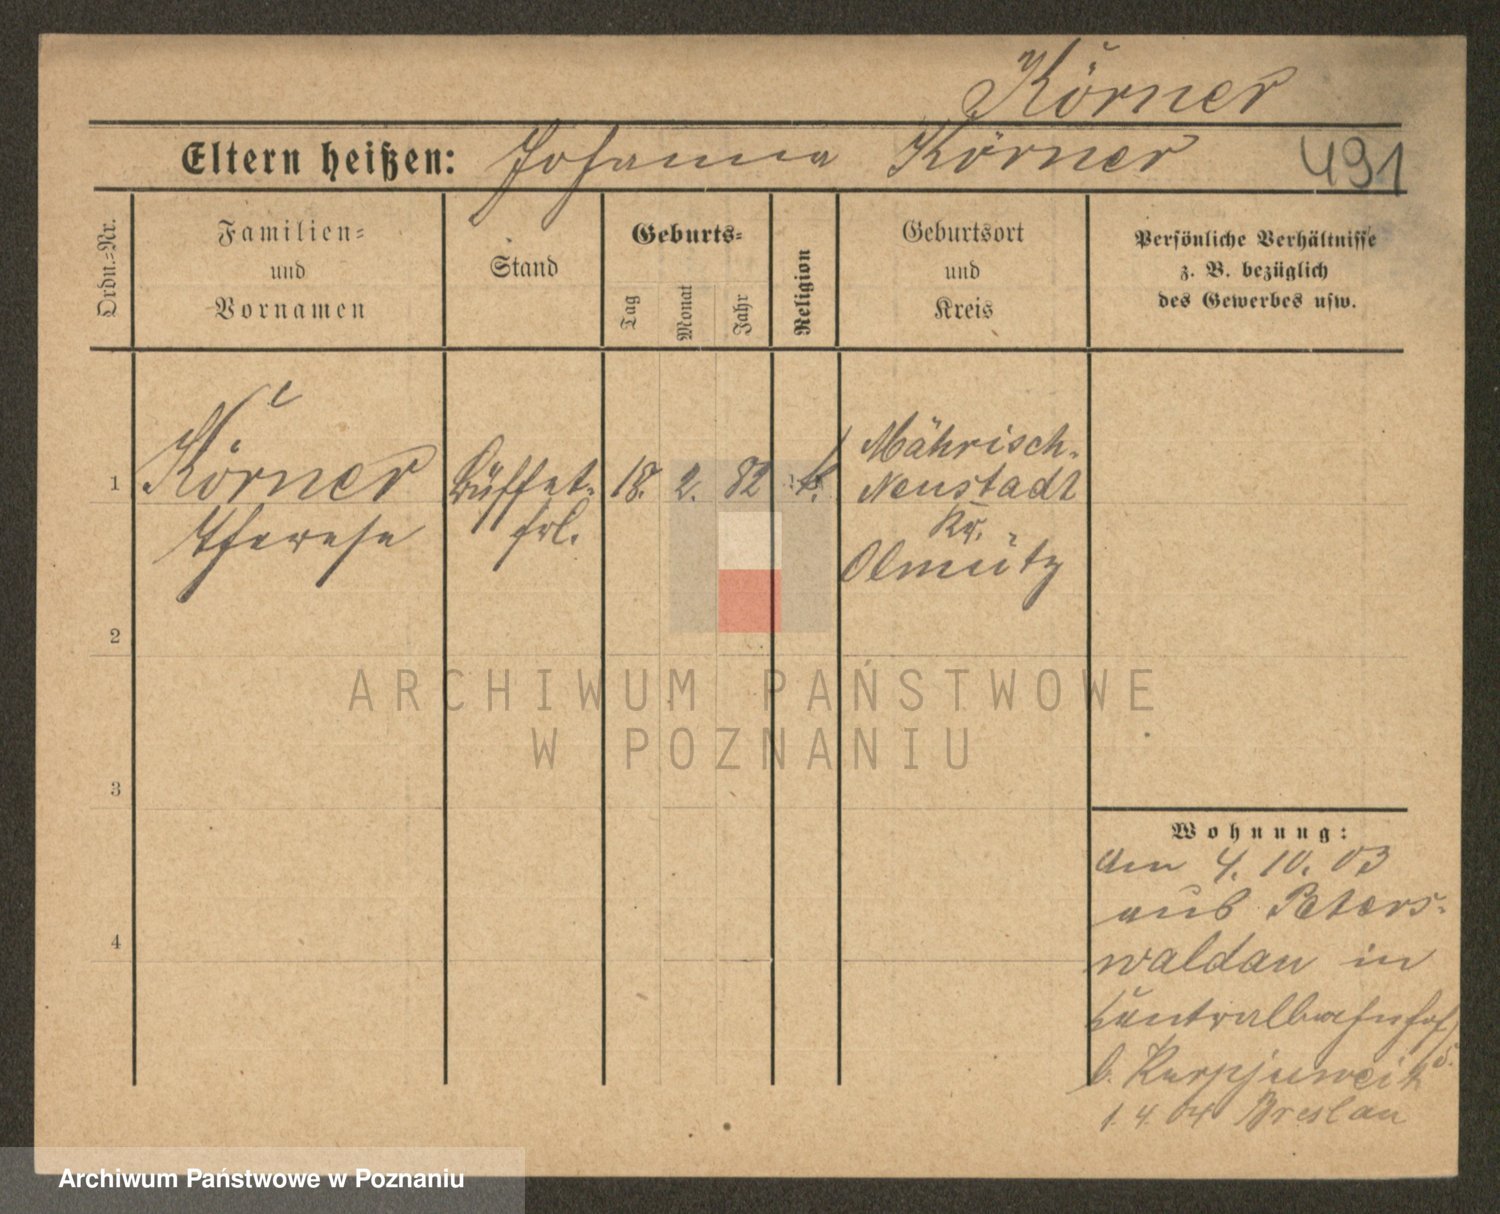 Körner
Eltern heißen: Johanna Körner 491
Ordn.-Nr.
Familien-
und
Vornamen
Stand
Geburts-
Tag
Monat
Jahr
Religion
Geburtsort
und
Kreis
Persönliche Verhältnisse
z. B. bezüglich
des Gewerbes usw.
1
Körner
Therese
Büffet-
frl.
18. 2. 82
k.
Mährisch-
Neustadt
Kr.
Olmütz
2
3
4
Wohnung:
Am 4. 10. 03
aus Peters-
waldau in
Centralbahnhof
b.
1. 4. 04 Breslau
ARCHIWUM PAŃSTWOWE
W POZNANIU
Archiwum Państwowe w Poznaniu